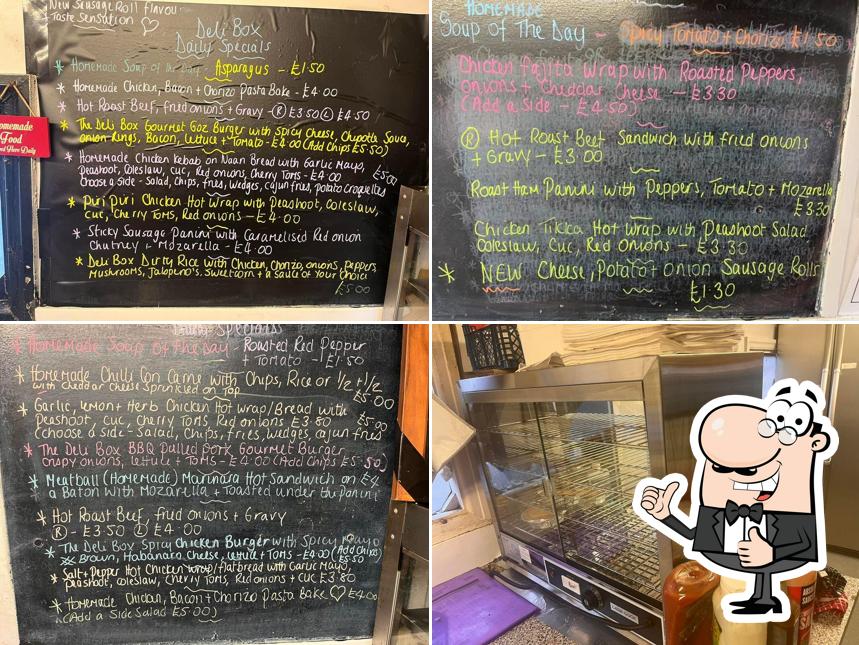 New Sausage Roll flavour
+ Taste Sensation ♡
Deli Box
Daily Specials
* Homemade Soup of The Day - Asparagus - £1.50
* Homemade Chicken, Bacon + Chorizo Pasta Bake - £4.00
* Hot Roast Beef, Fried onions + Gravy - Ⓡ £3.50 Ⓛ £4.50
* The Deli Box Gourmet 6oz Burger with Spicy Cheese, Chipotle Sauce,
onion Rings, Bacon, lettuce + Tomato - £4.00 (Add Chips £5.50)
* Homemade Chicken Kebab on Naan Bread with Garlic Mayo,
Peashoot, Coleslaw, cuc, Red onions, Cherry Toms - £4.00
Choose a side - Salad, Chips, fries, wedges, cajun fries, potato croquettes
£5.00
* Puri Puri Chicken Hot Wrap with Peashoot, Coleslaw,
Cuc, Cherry Toms, Red onions - £4.00
* Sticky Sausage Panini with Caramelised Red onion
Chutney + Mozarella - £4.00
* Deli Box Dirty Rice with Chicken, Chorizo, onions, peppers,
Mushrooms, Jalapeno's, Sweetcorn + a Sauce of Your Choice
£5.00
omemade
Food
HOMEMADE
Soup of The Day - Spicy Tomato + Chorizo £1.50
Chicken Fajita Wrap with Roasted Peppers,
onions + Cheddar Cheese - £3.30
(Add a side - £4.50)
Ⓡ Hot Roast Beef Sandwich with fried onions
+ Gravy - £3.00
Roast Ham Panini with Peppers, Tomato + Mozarella
£3.30
Chicken Tikka Hot Wrap with Peashoot Salad
Coleslaw, Cuc, Red onions - £3.30
* NEW Cheese, Potato + onion Sausage Rolls
£1.30
Daily Specials
* Homemade Soup Of The Day - Roasted Red Pepper
+ Tomato - £1.50
* Homemade Chilli Con Carne with Chips, Rice or 1/2 + 1/2
with cheddar cheese sprinkled on top
£5.00
* Garlic, Lemon + Herb Chicken Hot wrap/Bread with
Peashoot, Cuc, Cherry Toms, Red onions £3.80
£5.00
(choose a side - Salad, Chips, fries, wedges, cajun fries
* The Deli Box BBQ Pulled Pork Gourmet Burger
crispy onions, lettuce + Toms - £4.00 (Add Chips £5.50)
* Meatball (Homemade) Marinara Hot Sandwich on £4
a Baton with Mozarella + Toasted under the panini
* Hot Roast Beef, fried onions + Gravy
Ⓡ - £3.50 Ⓛ £4.00
* The Deli Box Spicy Chicken Burger with Spicy Mayo
Brown, Habanara Cheese, lettuce + Toms - £4.00 (Add Chips)
£5.50
* Salt + Pepper Hot Chicken wrap/flatbread with Garlic Mayo,
peashoot, coleslaw, Cherry Toms, Red onions + cuc £3.80
* Homemade Chicken, Bacon + Chorizo Pasta Bake ♡ £4.00
(Add a Side Salad £5.00)